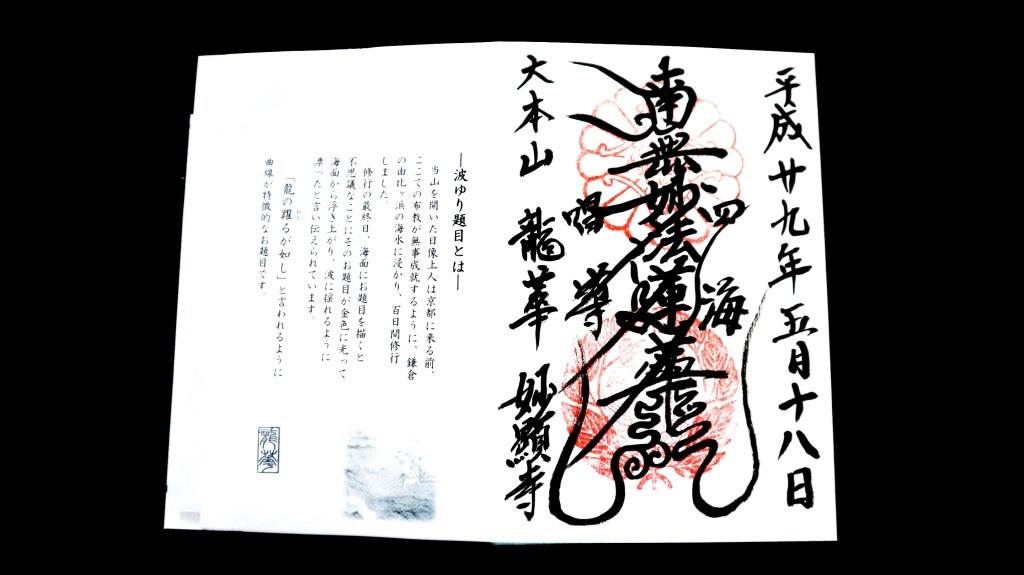 平成廿九年五月十八日
四海
南無妙法蓮華経
唱導
大本山 龍華 妙顯寺
―波ゆり題目とは―
当山を開いた日像上人は京都に来る前、
ここでの布教が無事成就するように、鎌倉
の由比ヶ浜の海水に浸かり、百日間修行
しました。
修行の最終日、海面にお題目を描くと
不思議なことにそのお題目が金色に光って
海面から浮き上がり、波に揺れるように
漂ったと言い伝えられています。
「龍の躍るが如し」と言われるように
曲線が特徴的なお題目です。
龍華